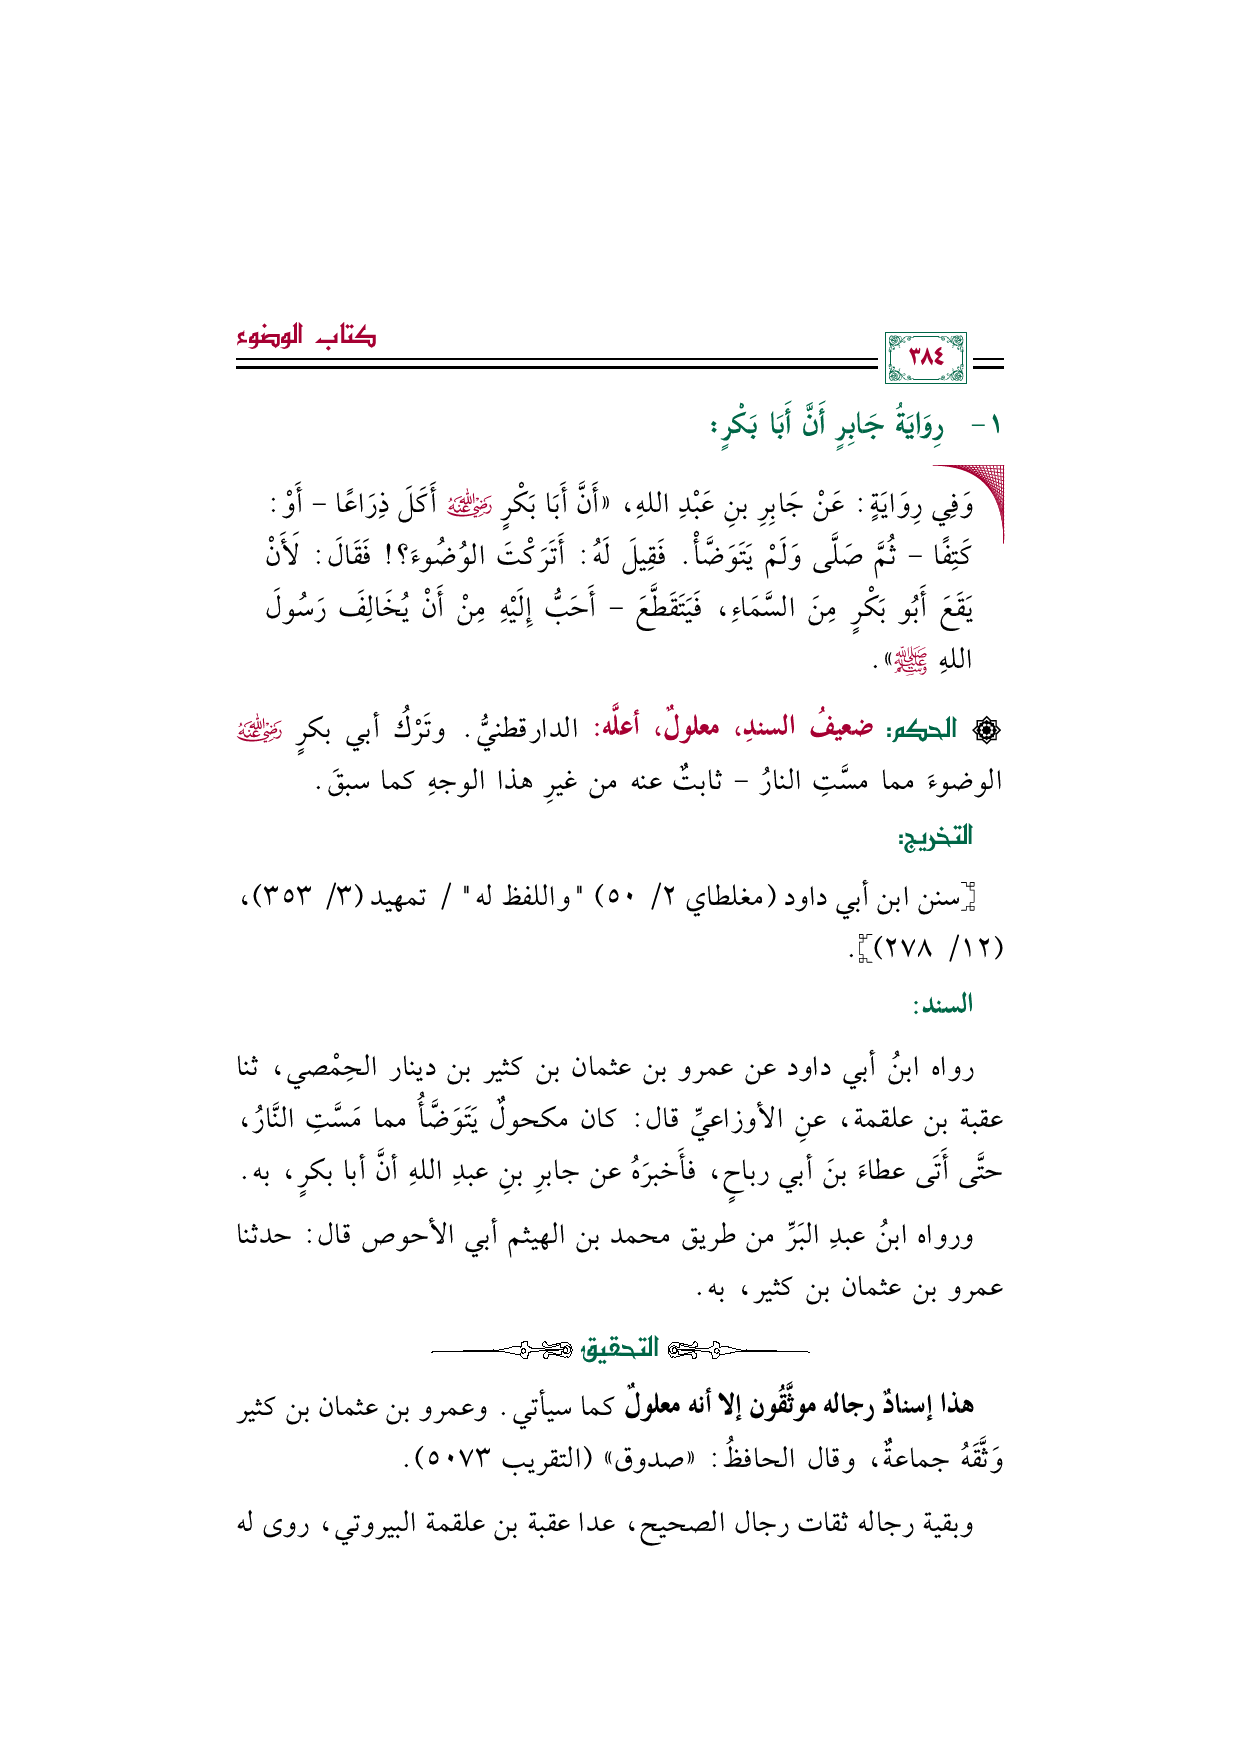 كتاب الوضوء
٣٨٤
١- رِوَايَةُ جَابِرٍ أَنَّ أَبَا بَكْرٍ:
وَفِي رِوَايَةٍ: عَنْ جَابِرِ بنِ عَبْدِ اللهِ، «أَنَّ أَبَا بَكْرٍ رضي الله عنه أَكَلَ ذِرَاعًا – أَوْ:
كَتِفًا – ثُمَّ صَلَّى وَلَمْ يَتَوَضَّأْ. فَقِيلَ لَهُ: أَتَرَكْتَ الوُضُوءَ؟! فَقَالَ: لَأَنْ
يَقَعَ أَبُو بَكْرٍ مِنَ السَّمَاءِ، فَيَتَقَطَّعَ – أَحَبُّ إِلَيْهِ مِنْ أَنْ يُخَالِفَ رَسُولَ
اللهِ ﷺ».
الحكم: ضعيفُ السندِ، معلولٌ، أعلَّه: الدارقطنيُّ. وتَرْكُ أبي بكرٍ رضي الله عنه
الوضوءَ مما مسَّتِ النارُ – ثابتٌ عنه من غيرِ هذا الوجهِ كما سبقَ.
التخريج:
[سنن ابن أبي داود (مغلطاي ٢/ ٥٠) "واللفظ له" / تمهيد (٣/ ٣٥٣)،
(١٢/ ٢٧٨)].
السند:
رواه ابنُ أبي داود عن عمرو بن عثمان بن كثير بن دينار الحِمْصي، ثنا
عقبة بن علقمة، عنِ الأوزاعيِّ قال: كان مكحولٌ يَتَوَضَّأُ مما مَسَّتِ النَّارُ،
حتَّى أَتَى عطاءَ بنَ أبي رباحٍ، فأَخبرَهُ عن جابرِ بنِ عبدِ اللهِ أنَّ أبا بكرٍ، به.
ورواه ابنُ عبدِ البَرِّ من طريق محمد بن الهيثم أبي الأحوص قال: حدثنا
عمرو بن عثمان بن كثير، به.
التحقيق
هذا إسنادٌ رجاله موثَّقُون إلا أنه معلولٌ كما سيأتي. وعمرو بن عثمان بن كثير
وَثَّقَهُ جماعةٌ، وقال الحافظُ: «صدوق» (التقريب ٥٠٧٣).
وبقية رجاله ثقات رجال الصحيح، عدا عقبة بن علقمة البيروتي، روى له